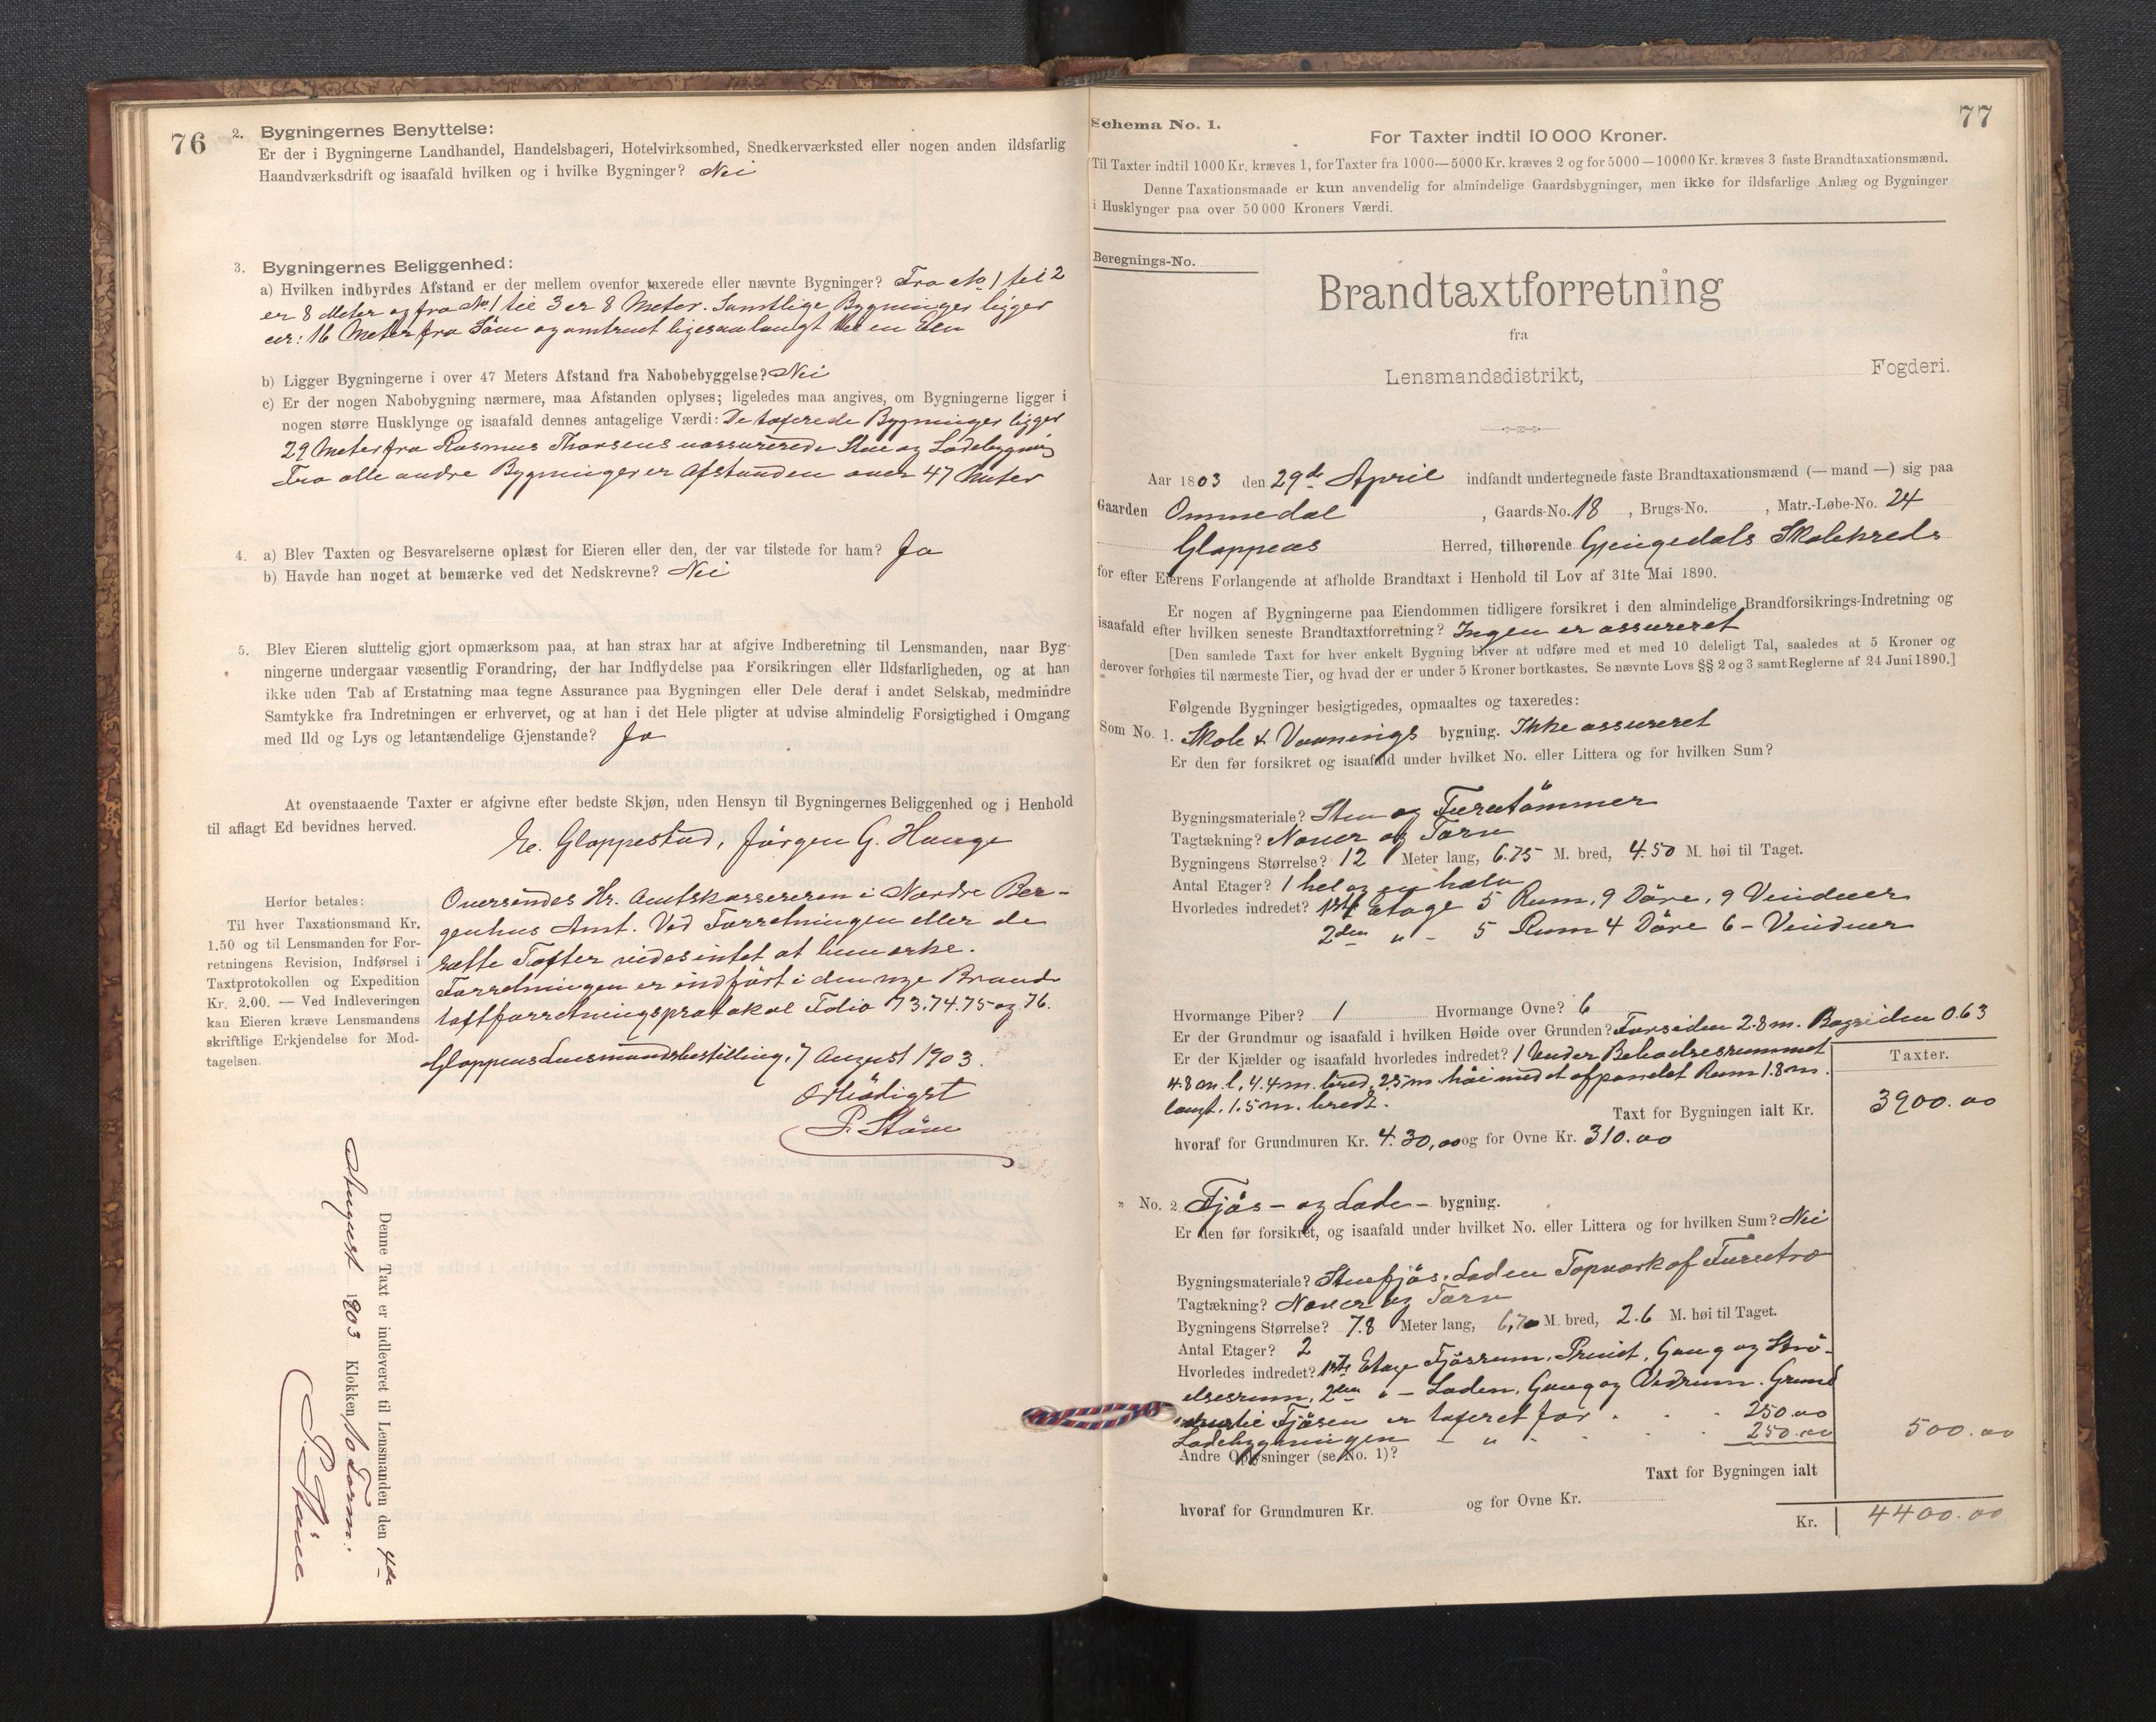 76
2. Bygningernes Benyttelse:
Er der i Bygningerne Landhandel, Handelsbageri, Hotelvirksomhed, Snedkerværksted eller nogen anden ildsfarlig
Haandværksdrift og isaafald hvilken og i hvilke Bygninger? Nei
3. Bygningernes Beliggenhed:
a) Hvilken indbyrdes Afstand er der mellem ovenfor taxerede eller nævnte Bygninger? Fra No. 1 til 2
er 8 Meter og fra No. 1 til 3 er 8 Meter. Samtlige Bygninger ligger
cir: 16 Meter fra Söen og omtrent ligesaa langt fra en Elv
b) Ligger Bygningerne i over 47 Meters Afstand fra Nabobebyggelse? Nei
c) Er der nogen Nabobygning nærmere, maa Afstanden oplyses; ligeledes maa angives, om Bygningerne ligger i
nogen større Husklynge og isaafald dennes antagelige Værdi: De taxerede Bygninger ligger
29 Meter fra Rasmus Thorsens uassurerede Stue og Ladebygning
Fra alle andre Bygninger er Afstanden over 47 Meter
4. a) Blev Taxten og Besvarelserne oplæst for Eieren eller den, der var tilstede for ham? Ja
b) Havde han noget at bemærke ved det Nedskrevne? Nei
5. Blev Eieren sluttelig gjort opmærksom paa, at han strax har at afgive Indberetning til Lensmanden, naar Byg-
ningerne undergaar væsentlig Forandring, der har Indflydelse paa Forsikringen eller Ildsfarligheden, og at han
ikke uden Tab af Erstatning maa tegne Assurance paa Bygningen eller Dele deraf i andet Selskab, medmindre
Samtykke fra Indretningen er erhvervet, og at han i det Hele pligter at udvise almindelig Forsigtighed i Omgang
med Ild og Lys og letantændelige Gjenstande? Ja
At ovenstaaende Taxter er afgivne efter bedste Skjøn, uden Hensyn til Bygningernes Beliggenhed og i Henhold
til aflagt Ed bevidnes herved.
E. Gloppestad, Jörgen G. Hauge
Herfor betales:
Til hver Taxationsmand Kr.
1.50 og til Lensmanden for For-
retningens Revision, Indførsel i
Taxtprotokollen og Expedition
Kr. 2.00. — Ved Indleveringen
kan Eieren kræve Lensmandens
skriftlige Erkjendelse for Mod-
tagelsen.
Oversendes Hr. Amtskassereren i Nordre Ber-
genhus Amt. Ved Forretningen eller de
satte Taxter vides intet at bemærke.
Forretningen er indfört i den nye Brand-
taxtforretningsprotokol Folio 73.74.75 og 76.
Gloppens Lensmandsbestilling, 7 August 1903.
Ærbödigst
P. Stöve
Denne Taxt er indleveret til Lensmanden den 4de
August 1903 Klokken 10 Form:
P. Stöve
77
Schema No. 1.
For Taxter indtil 10 000 Kroner.
Til Taxter indtil 1000 Kr. kræves 1, for Taxter fra 1000—5000 Kr. kræves 2 og for 5000—10000 Kr. kræves 3 faste Brandtaxationsmænd.
Denne Taxationsmaade er kun anvendelig for almindelige Gaardsbygninger, men ikke for ildsfarlige Anlæg og Bygninger
i Husklynger paa over 50 000 Kroners Værdi.
Beregnings-No.
Brandtaxtforretning
fra
Lensmandsdistrikt, Fogderi.
Aar 1803 den 29de April indfandt undertegnede faste Brandtaxationsmænd (— mand —) sig paa
Gaarden Ommedal, Gaards-No. 18, Brugs-No. , Matr.-Løbe-No. 24
Gloppens Herred, tilhørende Gjengedals Skolekreds
for efter Eierens Forlangende at afholde Brandtaxt i Henhold til Lov af 31te Mai 1890.
Er nogen af Bygningerne paa Eiendommen tidligere forsikret i den almindelige Brandforsikrings-Indretning og
isaafald efter hvilken seneste Brandtaxtforretning? Ingen er assureret
[Den samlede Taxt for hver enkelt Bygning bliver at udføre med et med 10 deleligt Tal, saaledes at 5 Kroner og
derover forhøies til nærmeste Tier, og hvad der er under 5 Kroner bortkastes. Se nævnte Lovs §§ 2 og 3 samt Reglerne af 24 Juni 1890.]
Følgende Bygninger besigtigedes, opmaaltes og taxeredes:
Som No. 1. Skole & Vaanings bygning. Ikke assureret
Er den før forsikret og isaafald under hvilket No. eller Littera og for hvilken Sum?
Bygningsmateriale? Sten og Furutömmer
Tagtækning? Næver og Torv
Bygningens Størrelse? 12 Meter lang, 6.75 M. bred, 4.50 M. høi til Taget.
Antal Etager? 1 hel og en halv
Hvorledes indredet? 1ste Etage 5 Rum, 9 Döre, 9 Vinduer
2den " - 5 Rum 4 Döre 6 - Vinduer
Hvormange Piber? 1 Hvormange Ovne? 6
Er der Grundmur og isaafald i hvilken Høide over Grunden? Forsiden 2.8 m. Bagsiden 0.63
Er der Kjælder og isaafald hvorledes indredet? 1 Under Beboelsesrummet
4.8 m. l, 4.4 m. bred, 2.5 m. höi med et afpanelet Rum 1.8 m.
langt, 1.5 m. bredt.
Taxter.
Taxt for Bygningen ialt Kr. 3900.00
hvoraf for Grundmuren Kr. 430,00 og for Ovne Kr. 310.00
" No. 2. Fjös - og Lade - bygning.
Er den før forsikret, og isaafald under hvilket No. eller Littera og for hvilken Sum? Nei
Bygningsmateriale? Stenfjös. Laden Tapværk af Furutræ
Tagtækning? Næver og Torv
Bygningens Størrelse? 7.8 Meter lang, 6,70 M. bred, 2.6 M. høi til Taget.
Antal Etager? 2
Hvorledes indredet? 1ste Etage Fjösrum, Privet, Gang og Strö-
elsesrum, 2den " - Laden, Gang og Vedrum. Grund
til Fjösen er taxeret for 250.00
Ladebygningen - " - 250.00 500.00
Andre Oplysninger (se No. 1)?
Taxt for Bygningen ialt
hvoraf for Grundmuren Kr. og for Ovne Kr.
Kr. 4400.00